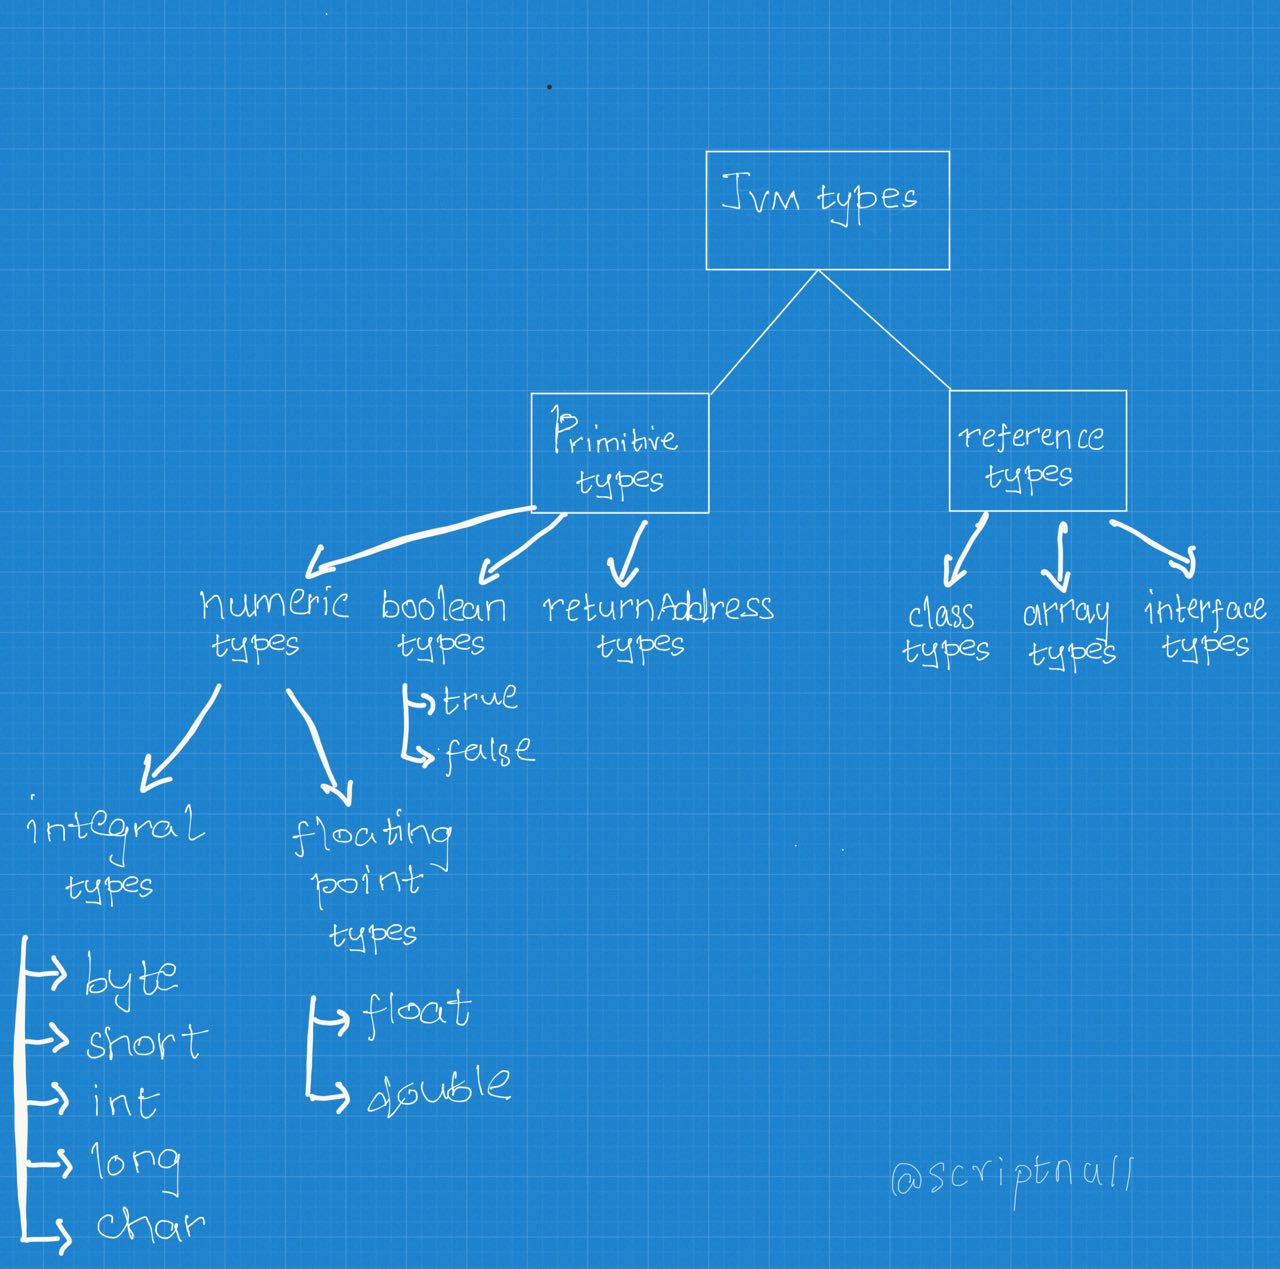 Jvm types
Primitive
types
reference
types
numeric
types
boolean
types
returnAddress
types
class
types
array
types
interface
types
true
false
integral
types
floating
point
types
byte
short
int
long
char
float
double
@scriptnull